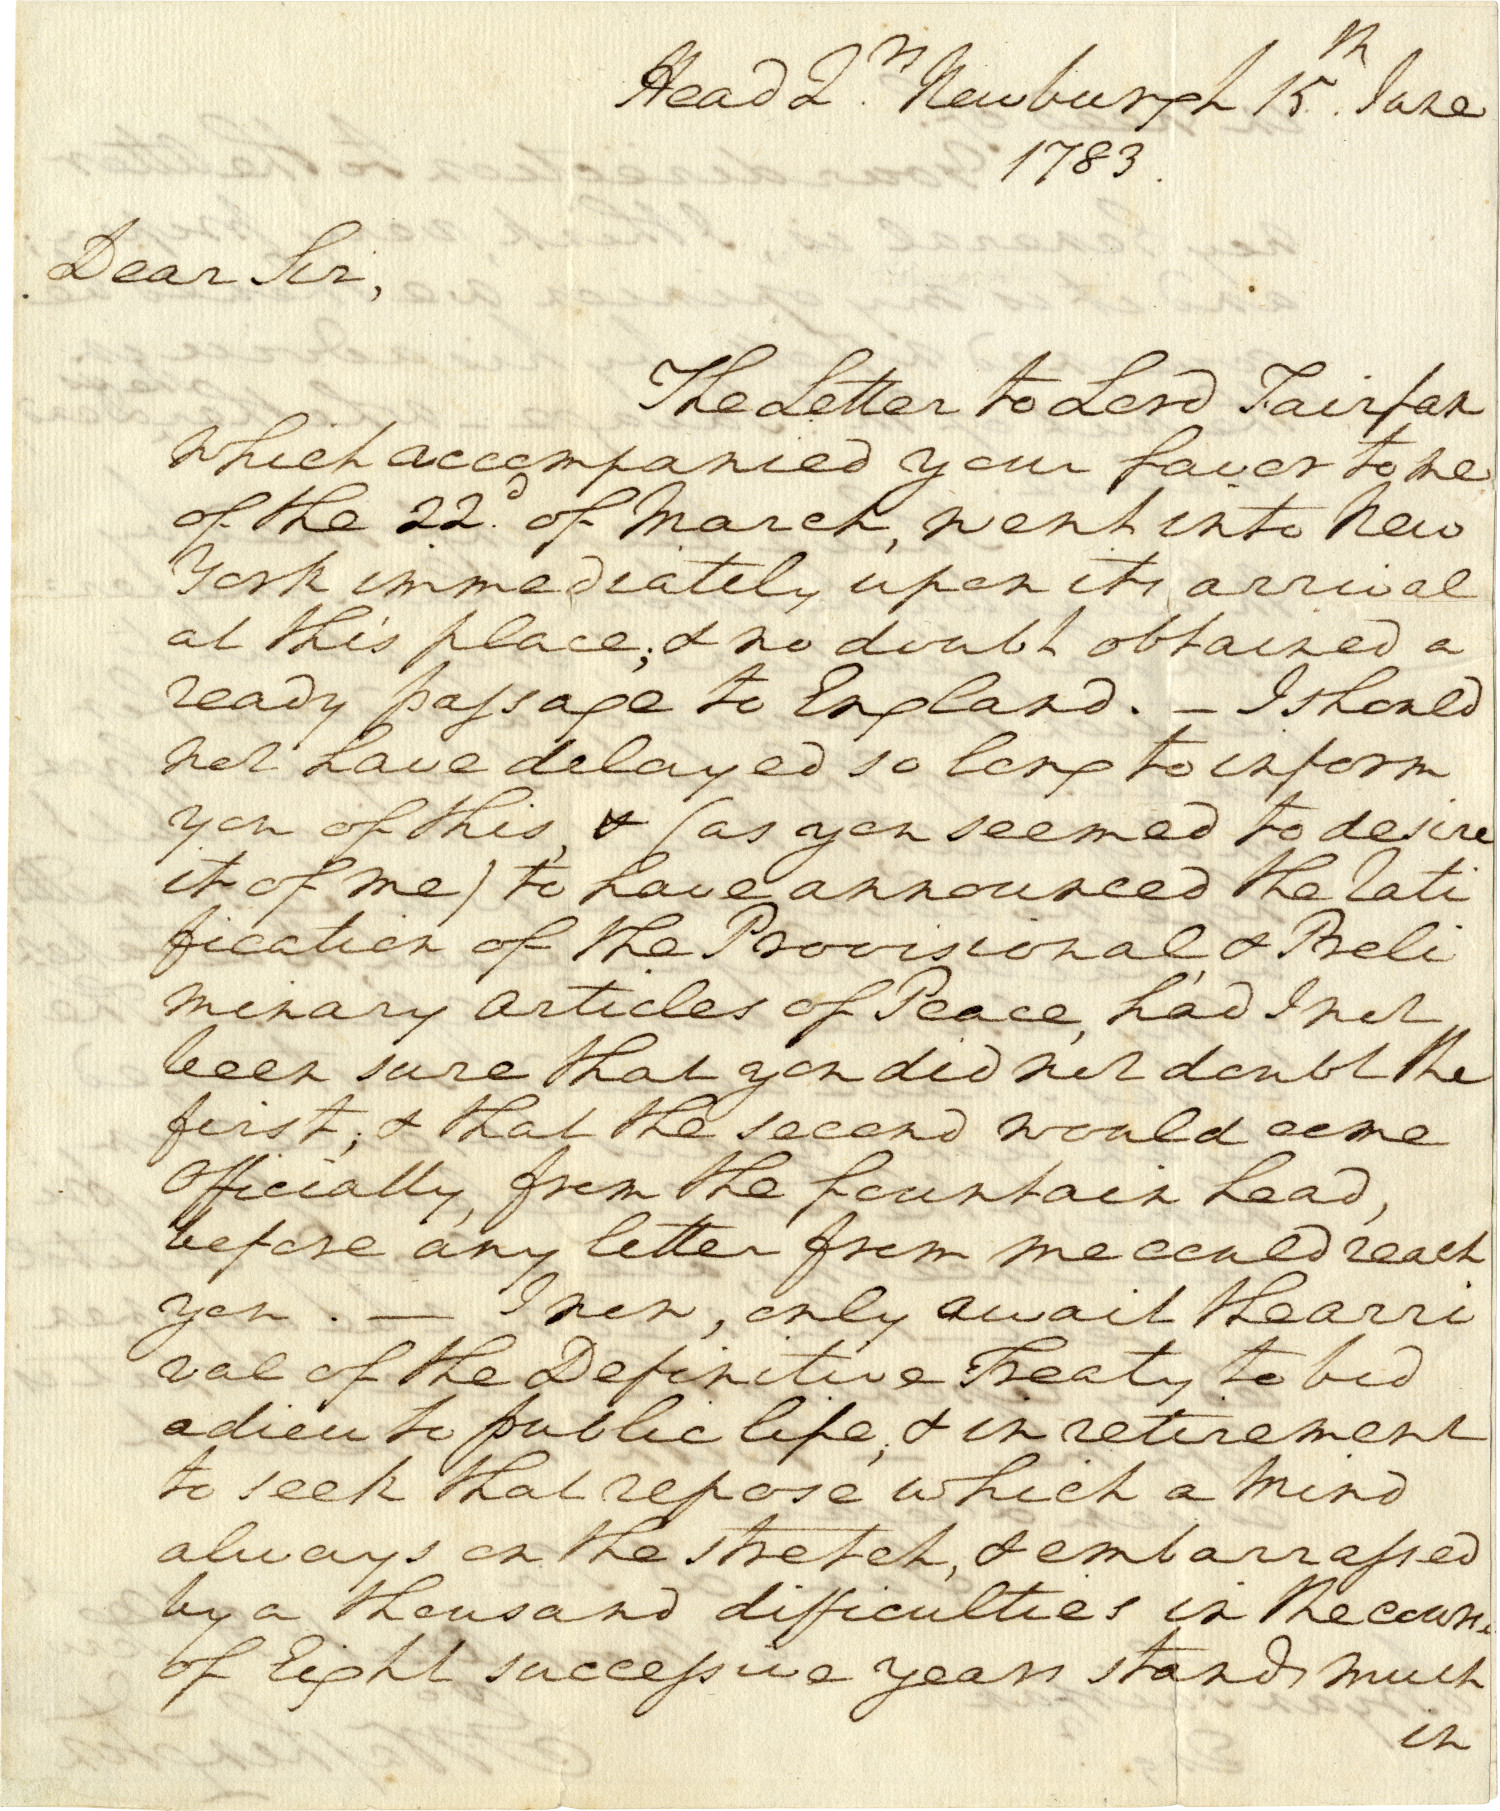 Head Qrs. Newburgh 15th. June
1783.
Dear Sir,
The Letter to Lord Fairfax
which accompanied your favor to me
of the 22d. of March, went into New
York immediately upon its arrival
at this place; & no doubt obtained a
ready passage to England. — I should
not have delayed so long to inform
you of this, & (as you seemed to desire
it of me) to have announced the rati
fication of the Provisional, & Preli
minary articles of Peace, had I not
been sure that you did not doubt the
first; & that the second would come
Officially, from the fountain head,
before any letter from me could reach
you. — I now, only await the arri
val of the Definitive Treaty, to bid
adieu to public life; & in retirement
to seek that repose which a Mind
always on the stretch, & embarrassed
by a thousand difficulties in the course
of Eight successive years stands much
in